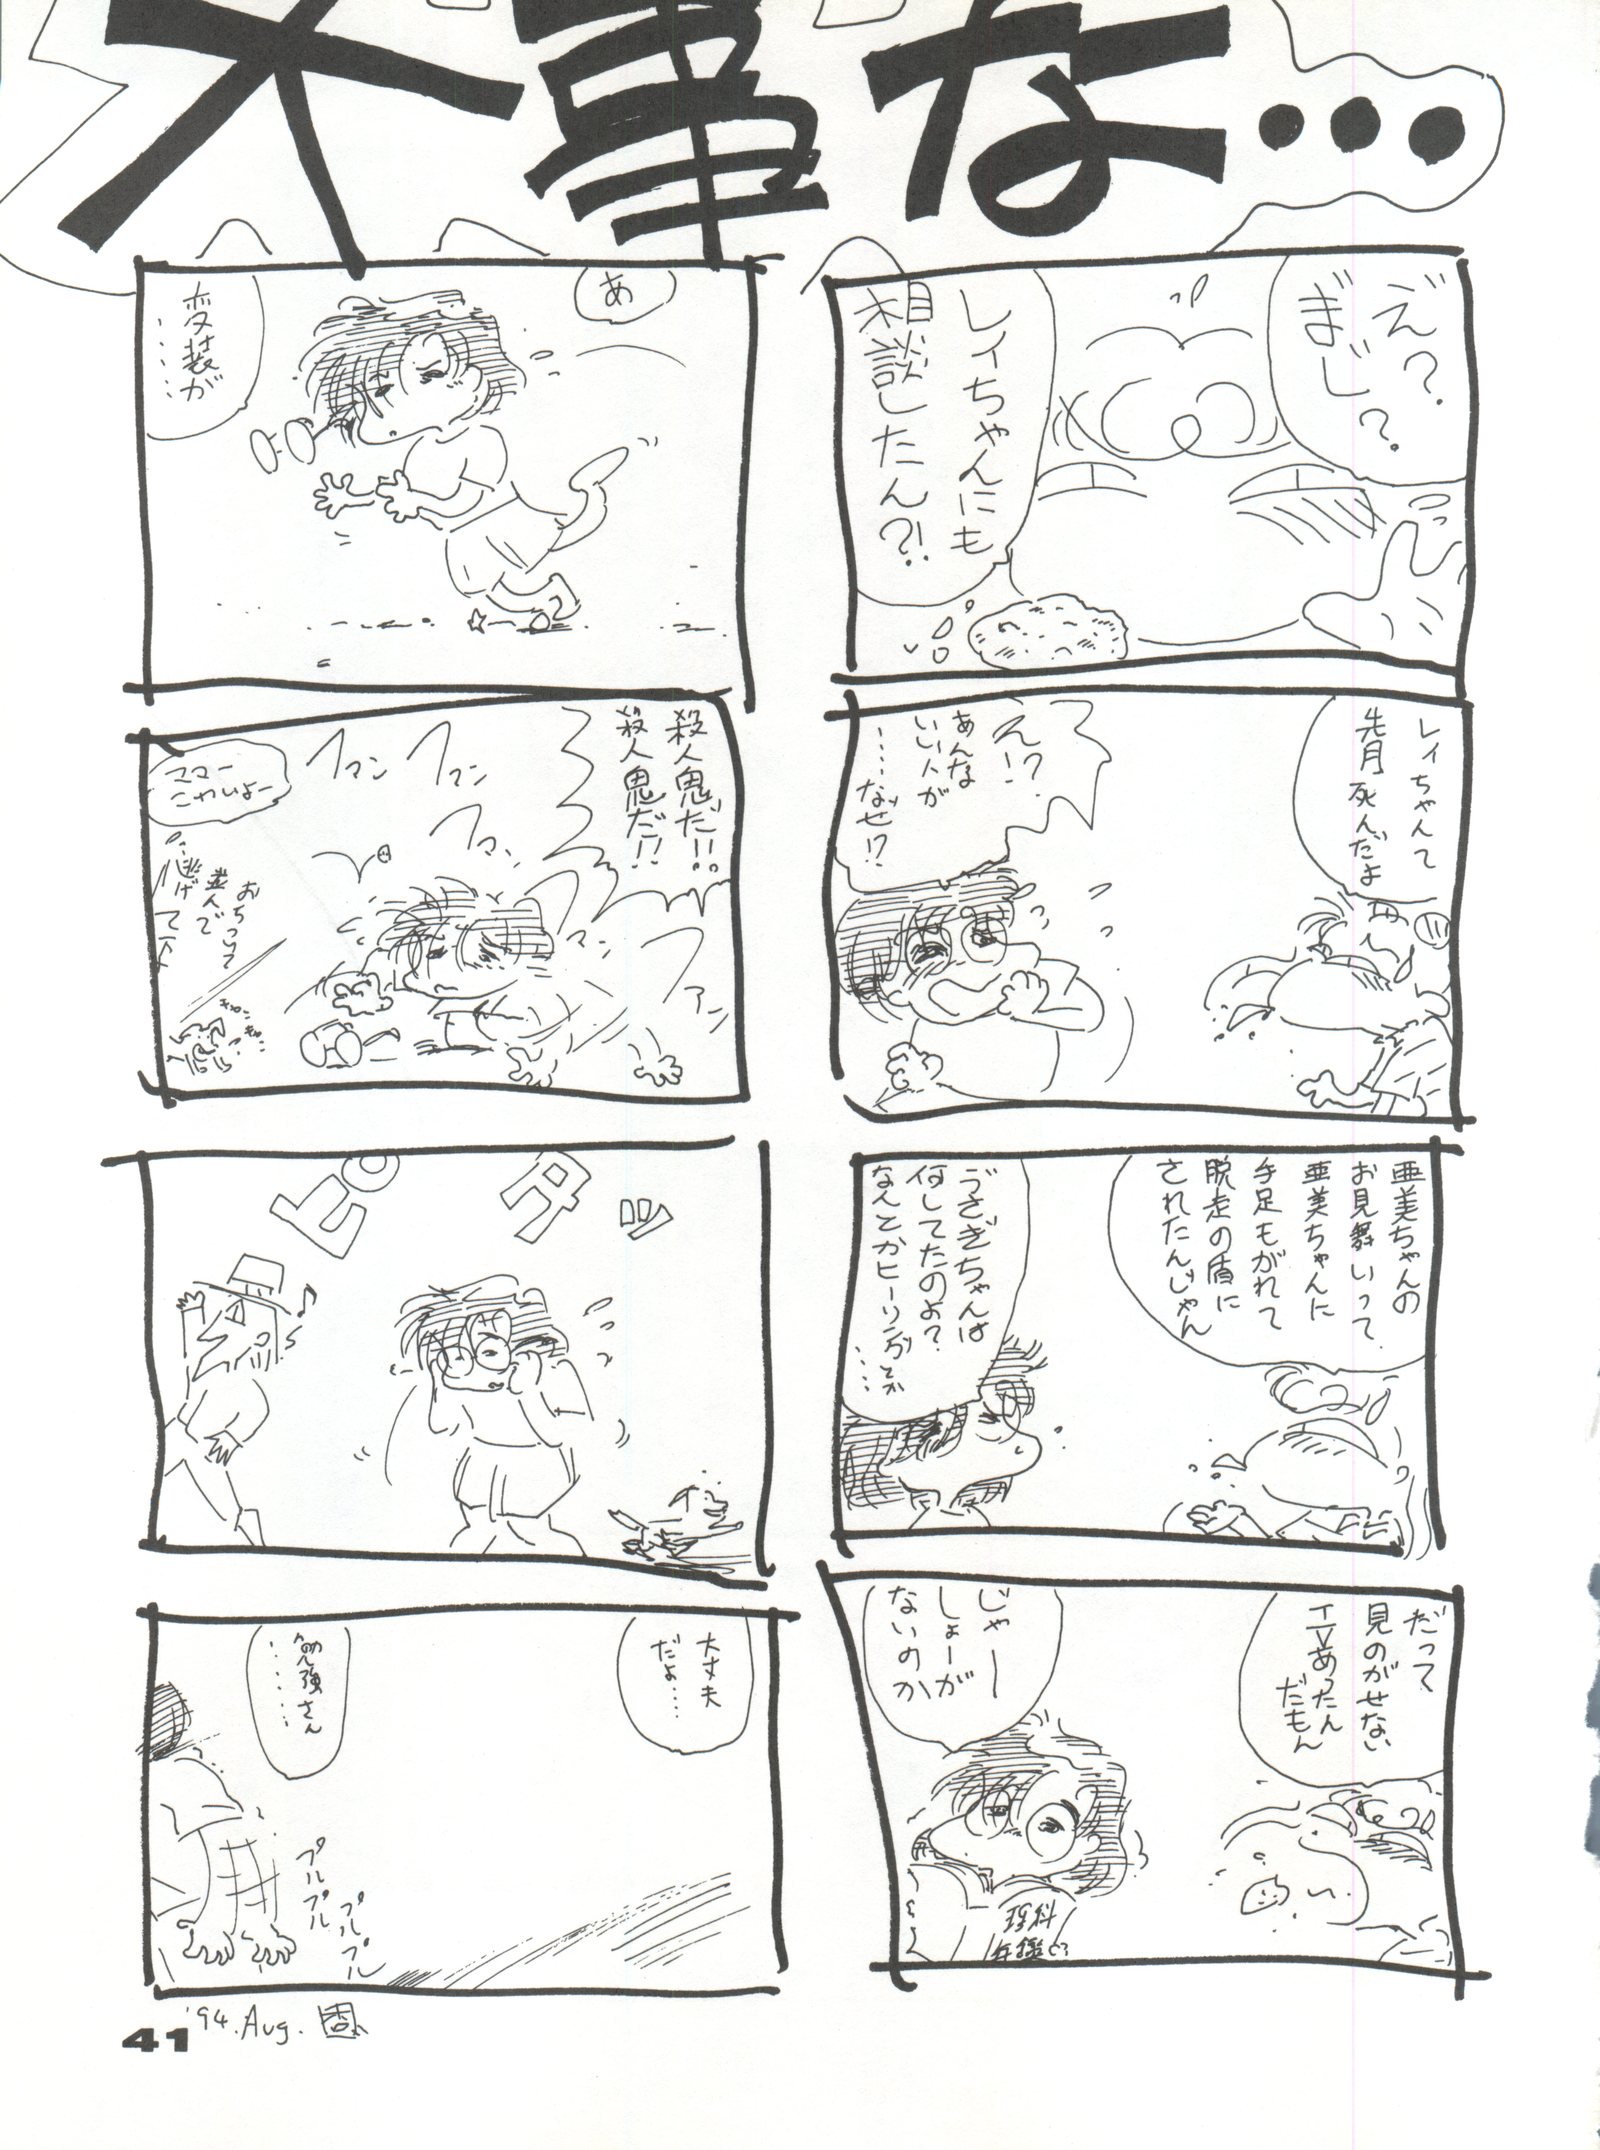 大事な・・・
え?
まじ?
レイちゃんにも
相談したん?!
レイちゃんて
先月死んだよ
え!?
あんな
いい人が
・・・・なぜ!?
亜美ちゃんの
お見舞いって
亜美ちゃんに
手足もがれて
脱走の盾に
されたんじゃん
うさぎちゃんは
何してたのよ?
なんとかヒーリングとか
・・・・
だって
見のがせない
TVあったん
だもん
じゃー
しょーが
ないのか
理科
年鑑
あ
変装が
・・・・・
殺人鬼だ!!
殺人鬼だ!!
ファン
ファン
ファン
ファン
ファン
ママー
こわいよー
おちついて
並んで
逃げて下
ピタッ
大丈夫
だよ・・・・
勉強さん
・・・・・・
プルプル
プルプル
41
'94.Aug.